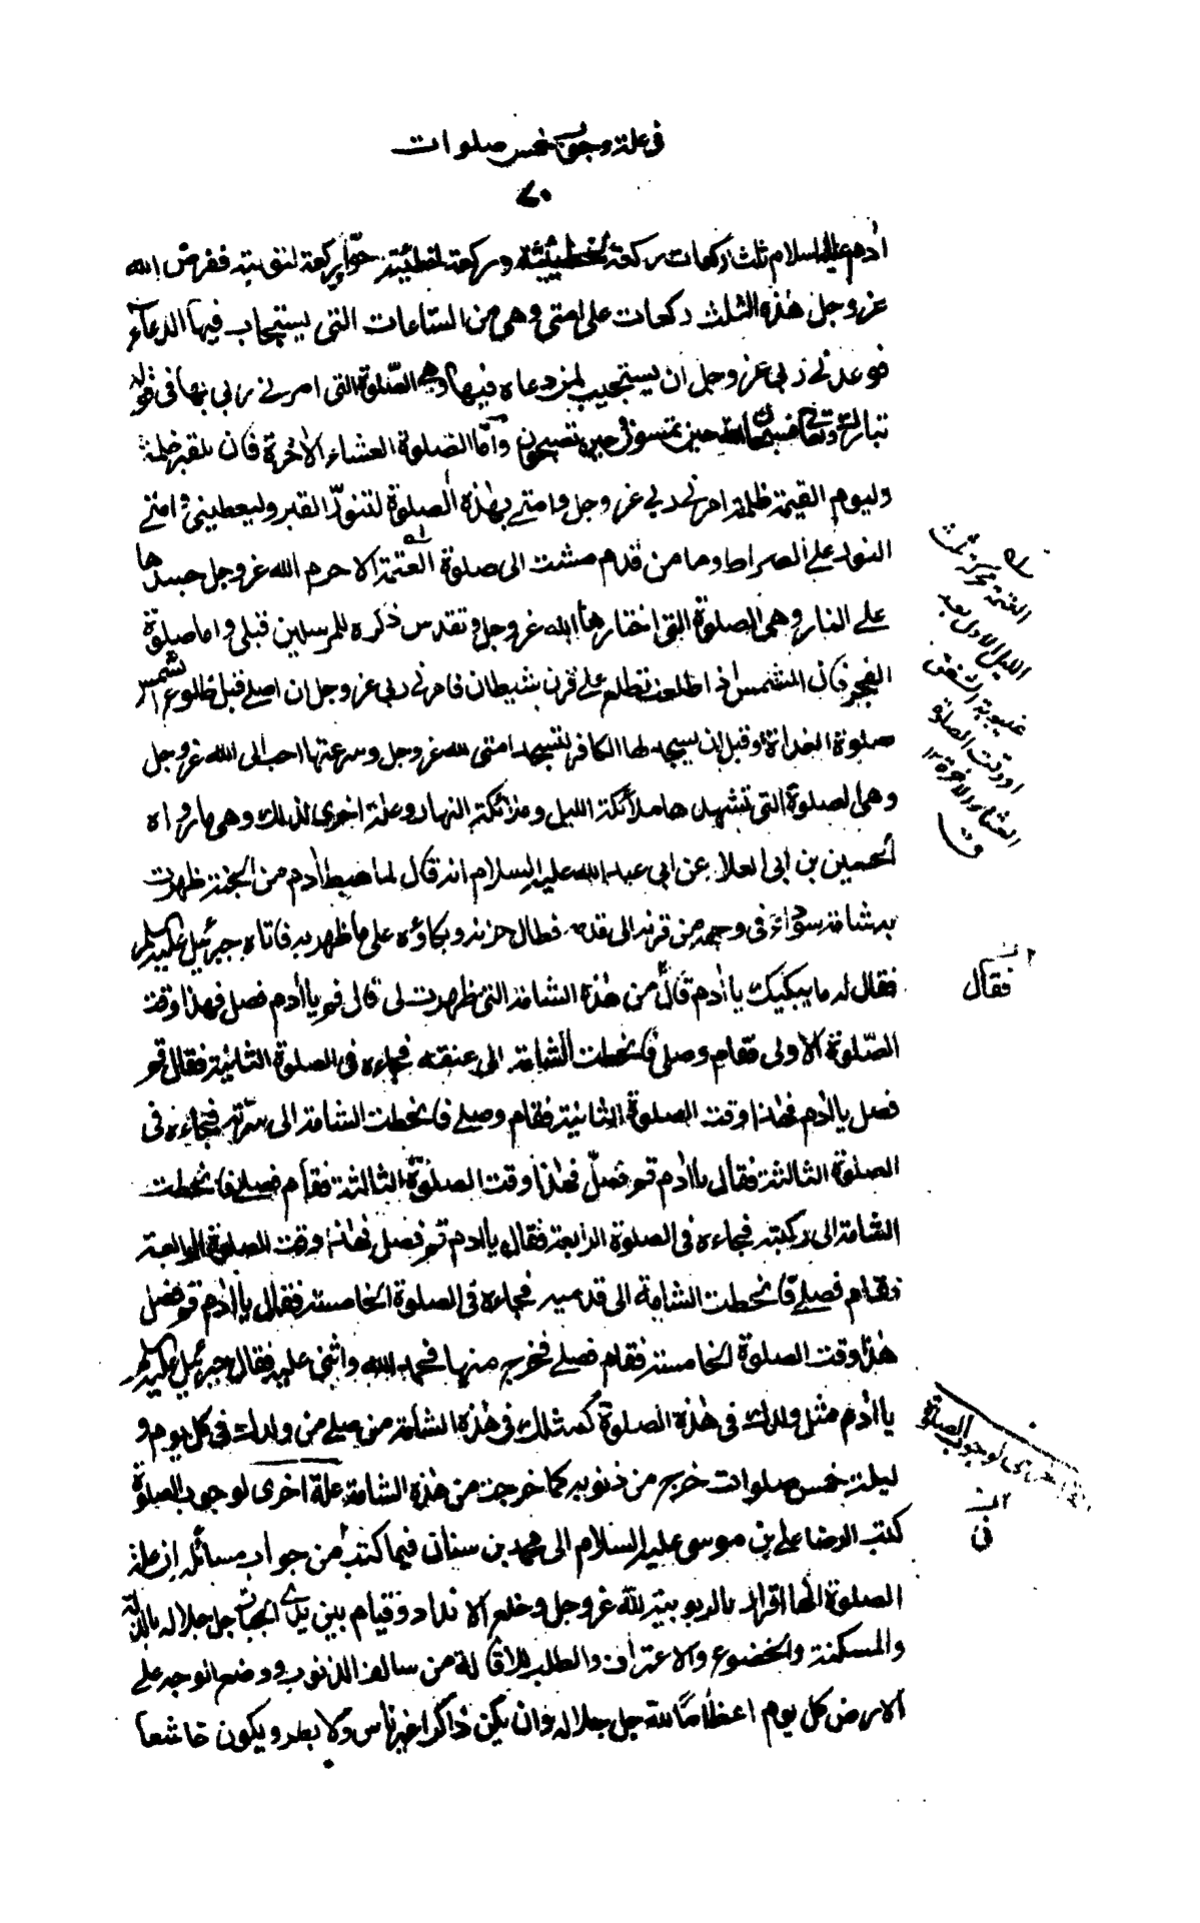 فى علة وجوب خمس صلوات
٧٠
آدم عليه السلام ثلث ركعات ركعة لخطيئته وركعة لخطيئة حوّا وركعة لتوبته ففرض الله
عز وجل هذه الثلث ركعات على امتى وهى من الساعات التى يستجاب فيها الدعآء
فوعدنى ربى عز وجل ان يستجيب لمن دعاه فيها وهى الصّلوة التى امرنى ربى بها فى قوله
تبارك وتعالى فسبحان الله حين تمسون وحين تصبحون وامّا الصلوة العشاء الآخرة فان للقبر ظلمة
وليوم القيمة ظلمة امرنى ربى عز وجل وامتى بهذه الصلوة لتنوّر القبر وليعطينى وامتى
النور على الصراط وما من قدم مشت الى صلوة العتمة الا حرم الله عز وجل جسدها
على النار وهى الصلوة التى اختارها الله عز وجل وتقدس ذكره للمرسلين قبلى واما صلوة
الفجر فان الشمس اذا طلعت تطلع على قرن شيطان فامرنى ربى عز وجل ان اصلى قبل طلوع الشمس
صلوة الغداة وقبل ان يسجد لها الكافر لتسجد امتى لله عز وجل وسرعتها احب الى الله عز وجل
وهى الصلوة التى تشهدها ملائكة الليل وملائكة النهار وعلة اخرى لذلك وهى ما رواه
الحسين بن ابى العلا عن ابى عبد الله عليه السلام انه قال لما هبط آدم من الجنة ظهرت
به شامة سوداء فى وجهه من قرنه الى قدمه فطال حزنه وبكاؤه على ما ظهر به فاتاه جبرئيل عليه السلم
فقال له ما يبكيك يا آدم قال من هذه الشامة التى ظهرت لى قال قم يا آدم فصل فهذا وقت
الصّلوة الاولى فقام وصلى فانحطت الشامة الى عنقه فجاءه فى الصلوة الثانية فقال قم
فصل يا آدم فهذا وقت الصلوة الثانية فقام وصلى فانحطت الشامة الى سرّته فجاءه فى
الصلوة الثالثة فقال يا آدم قم فصلّ فهذا وقت الصلوة الثالثة فقام فصلى فانحطت
الشامة الى ركبته فجاءه فى الصلوة الرابعة فقال يا آدم قم فصل فهذا وقت الصلوة الرابعة
فقام فصلى فانحطت الشامة الى قدميه فجاءه فى الصلوة الخامسة فقال يا آدم قم فصل
هذا وقت الصلوة الخامسة فقام فصلى فخرج منها فحمد الله واثنى عليه فقال جبرئيل عليه السلم
يا آدم مثل ولدك فى هذه الصلوة كمثلك فى هذه الشامة من صلى من ولدك فى كل يوم و
ليلة خمس صلوات خرج من ذنوبه كما خرجت من هذه الشامة علة اخرى لوجوب الصلوة
كتب الرضا على بن موسى عليه السلام الى محمد بن سنان فيما كتب من جواب مسائله ان علة
الصلوة انها اقرار بالربوبية لله عز وجل وخلع الانداد وقيام بين يدى الجبار جل جلاله بالذلة
والمسكنة والخضوع والاعتراف والطلب للاقالة من سالف الذنوب ووضع الوجه على
الارض كل يوم اعظامًا لله جل جلاله وان يكن ذاكرا غير ناس ولا بطر ويكون خاشعا
العتمة محركة ثلث
الليل الاول بعد
غيبوبة الشفق
او وقت الصلوة
العشاء الآخرة ١٢
ق
فقال
علة اخرى لوجوب الصلوة
فى